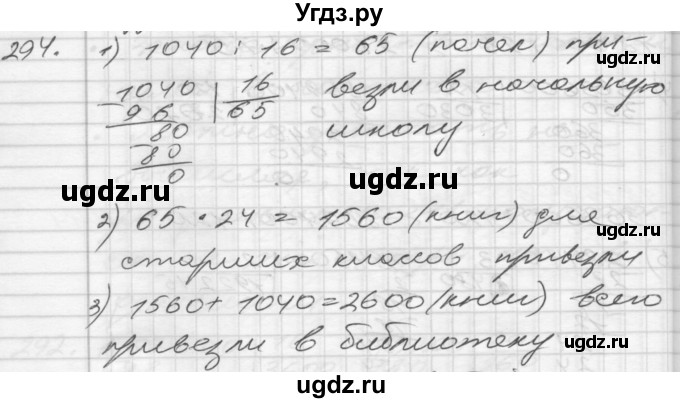 Угдз.ру
294. 1) 1040 : 16 = 65 (пачек) при-
1040 | 16 везли в начальную
- 96 65 школу.
80
- 80
0
ugdz.ru ugdz.ru
2) 65 · 24 = 1560 (книг) для
старших классов привезли
ugdz.ru
3) 1560 + 1040 = 2600 (книг) всего
привезли в библиотеку
ugdz.ru
ugdz.ru